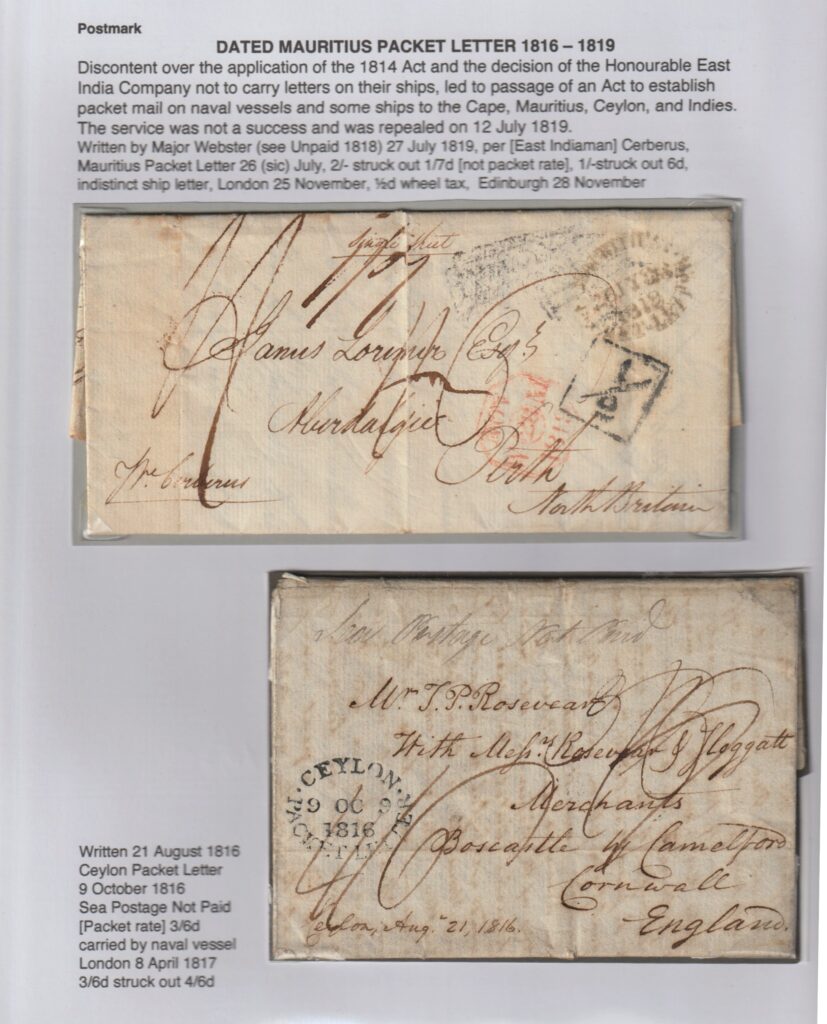 Postmark
DATED MAURITIUS PACKET LETTER 1816 – 1819
Discontent over the application of the 1814 Act and the decision of the Honourable East
India Company not to carry letters on their ships, led to passage of an Act to establish
packet mail on naval vessels and some ships to the Cape, Mauritius, Ceylon, and Indies.
The service was not a success and was repealed on 12 July 1819.
Written by Major Webster (see Unpaid 1818) 27 July 1819, per [East Indiaman] Cerberus,
Mauritius Packet Letter 26 (sic) July, 2/- struck out 1/7d [not packet rate], 1/-struck out 6d,
indistinct ship letter, London 25 November, ½d wheel tax, Edinburgh 28 November
Single Sheet
James Lorimer Esqr
Aberdalgie
Perth
Pr. Cerberus
North Britain
Sea Postage Not Paid
Mr. T. P. Rosevear
With Messrs Rosevear & Sloggatt
Merchants
Boscastle by Camelford
Cornwall
England.
Ceylon, Augt. 21, 1816.
CEYLON
9 OC 9
1816
PACKET LETTER
Written 21 August 1816
Ceylon Packet Letter
9 October 1816
Sea Postage Not Paid
[Packet rate] 3/6d
carried by naval vessel
London 8 April 1817
3/6d struck out 4/6d